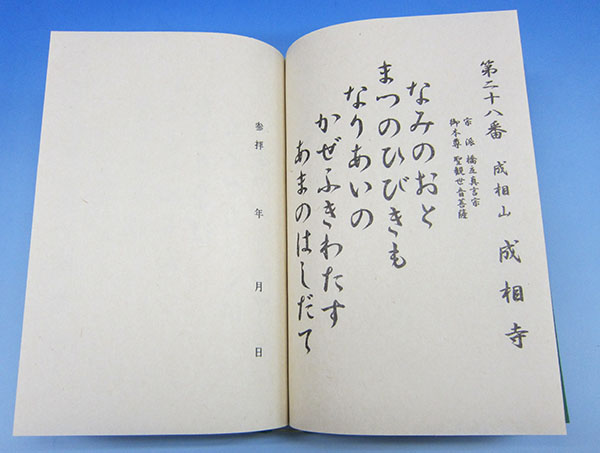 第二十八番 成相山 成相寺
宗派 橋立真言宗
御本尊 聖観世音菩薩
なみのおと
まつのひびきも
なりあいの
かぜふきわたす
あまのはしだて
参拝 年 月 日